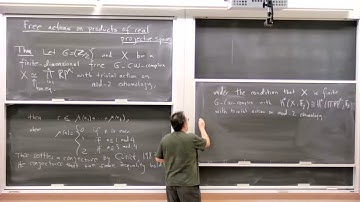 Free actions on products of real
projective spaces
Thm. Let G=(Z/2)^r and X be a
finite-dimensional free G-CW-complex
X ≃ ∏ RP^{n_i} with trivial action on
mod-2 cohomology.
then r ≤ μ(n_1)+...+μ(n_k)
where μ(n_i) = { 0 if n is even
1 if n ≡ 1 mod 4
2 if n ≡ 3 mod 4
This settles a conjecture by Cusick, 198
conjectures that the same inequality holds
under the condition that X is finite
G-CW-complex with H^*(X; F_2) ≅ H^*(∏ RP^{n_i}; F_2)
with trivial action on mod-2 cohomology.